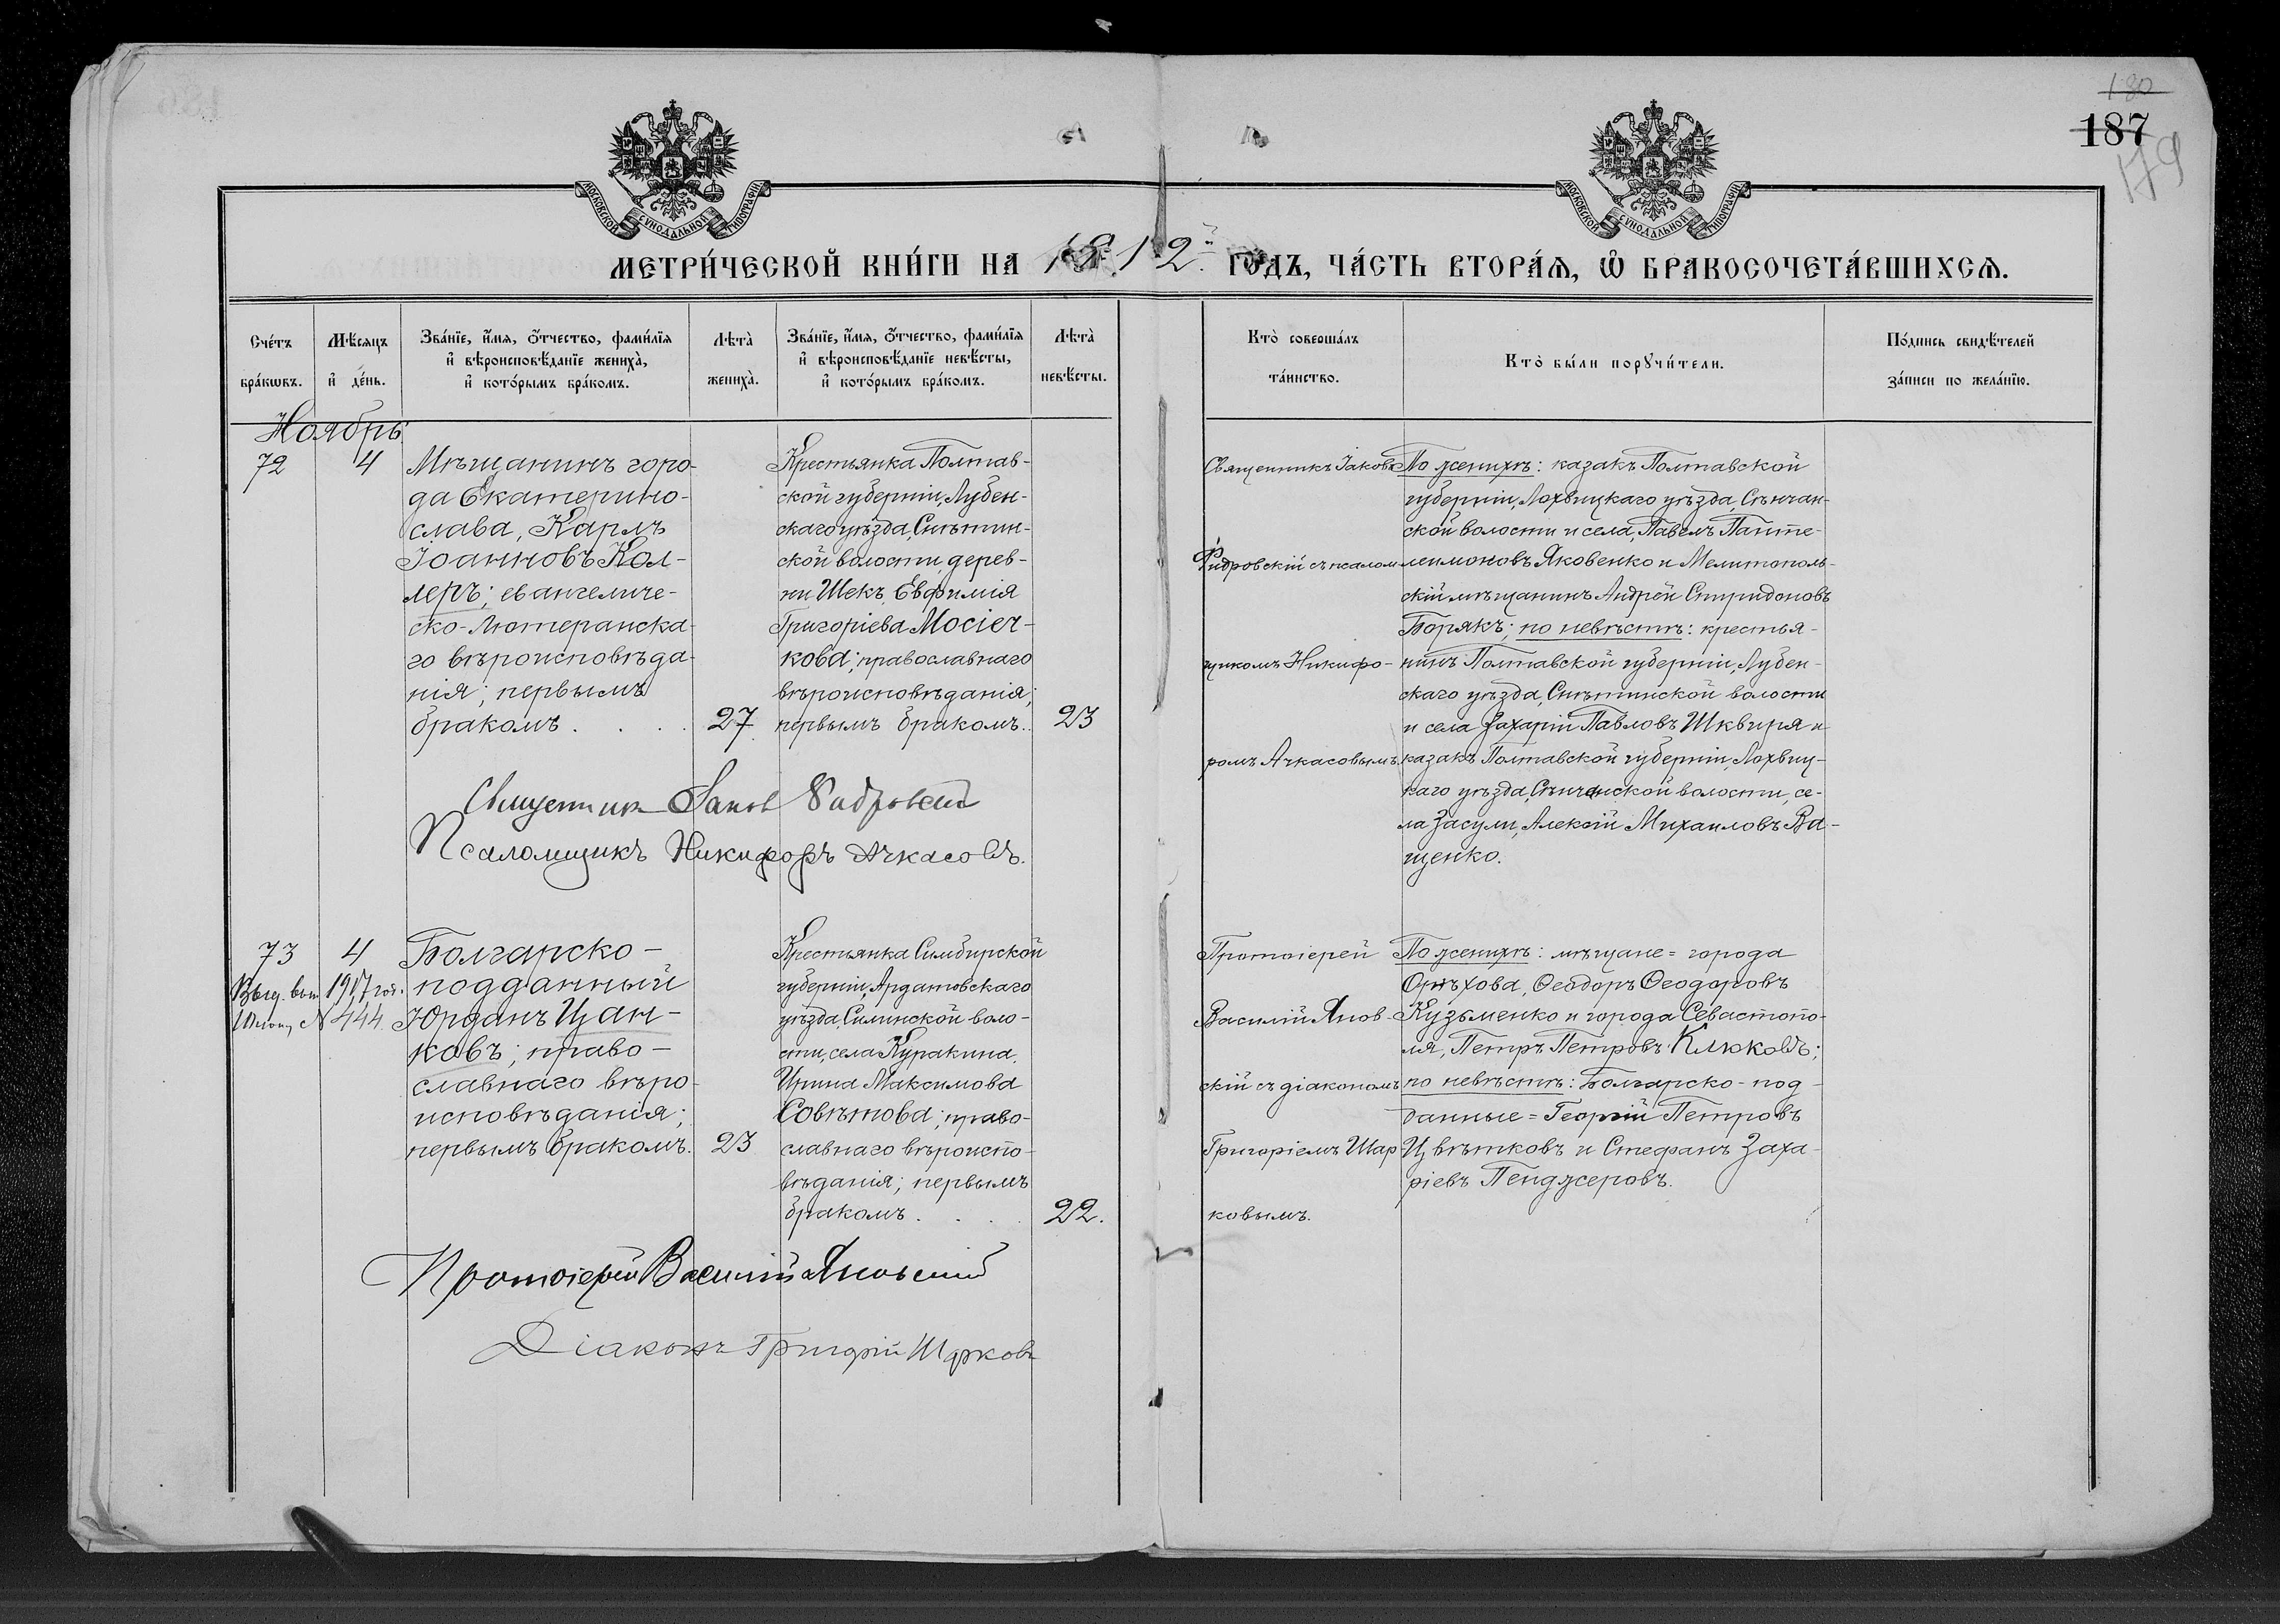 180
187
179
МОСКОВСКОЙ СѴНОДАЛЬНОЙ ТИПОГРАФІИ
МОСКОВСКОЙ СѴНОДАЛЬНОЙ ТИПОГРАФІИ
МЕТРИ́ЧЕСКОЙ КНИ́ГИ НА 1912й ГО́ДЪ, ЧА́СТЬ ВТОРА́Я, Ѡ БРАКОСОЧЕТА́ВШИХСЯ.
Сче́тъ
бра́ковъ.
Мѣ́сяцъ
и҆ де́нь.
Зва́нїе, и҆́мя, ѻ҆́тчество, фами́лїя
и҆ вѣроисповѣ́данїе жениха̀,
и҆ кото́рымъ бра́комъ.
Лѣта̀
жениха̀.
Зва́нїе, и҆́мя, ѻ҆́тчество, фами́лїя
и҆ вѣроисповѣ́данїе невѣ́сты,
и҆ кото́рымъ бра́комъ.
Лѣта̀
невѣ́сты.
Кто̀ соверша́лъ
та́инство.
Кто̀ бы́ли порꙋчи́тели.
По́дпись свидѣ́телей
за́писи по жела́нїю.
Ноябрь
72
4
Мѣщанинъ горо-
да Екатерино-
слава, Карлъ
Іоанновъ Кол-
леръ; евангеличе-
ско-Лютеранска-
го вѣроисповѣда-
нія; первымъ
бракомъ . . . .
27
Крестьянка Полтав-
ской губерніи, Лубен-
скаго уѣзда, Снѣтин-
ской волости, дерев-
ни Шекъ, Евфимія
Григоріева Мосієч-
кова; православнаго
вѣроисповѣданія;
первымъ бракомъ..
23
Священникъ Іаковъ
Фидровскій съ псалом-
щикомъ Никифо-
ромъ Ачкасовымъ
По женихѣ: казакъ Полтавской
губерніи, Лохвицкаго уѣзда, Сѣнчан-
ской волости и села, Павелъ Панте-
леимоновъ Яковенко и Мелитополь-
скій мѣщанинъ Андрей Спиридоновъ
Борякъ; по невѣстѣ: крестья-
нинъ Полтавской губерніи, Лубен-
скаго уѣзда, Снѣтинской волости
и села Захарій Павловъ Шквиря и
казакъ Полтавской губерніи, Лохвиц-
каго уѣзда, Сѣнчанской волости, се-
ла Засули, Алексій Михаиловъ Ва-
щенко.
Священник Іаков Фидровскій
Псаломщикъ Никифоръ Ачкасовъ.
73
4
Выд. вып. 1917 год.
№ 444
Болгарско-
подданный
Юрданъ Цан-
ковъ; право-
славнаго вѣро-
исповѣданія;
первымъ бракомъ.
23
Крестьянка Симбирской
губерніи, Ардатовскаго
уѣзда, Силинской воло-
сти, села Куракина,
Ирина Максимова
Совѣтова; право-
славнаго вѣроиспо-
вѣданія; первымъ
бракомъ . . . .
22.
Протоіерей
Василій Янов-
скій съ діакономъ
Григоріемъ Шар-
ковымъ.
По женихѣ: мѣщане = города
Орѣхова, Ѳеодоръ Ѳеодоровъ
Кузьменко и города Севастопо-
ля, Петръ Петровъ Клюковъ;
по невѣстѣ: Болгарско-под-
данные = Георгій Петровъ
Цвѣтковъ и Стефанъ Заха-
ріевъ Пенджеровъ.
Протоіерей Василій Яновскій
Діаконъ Григорій Шарковъ